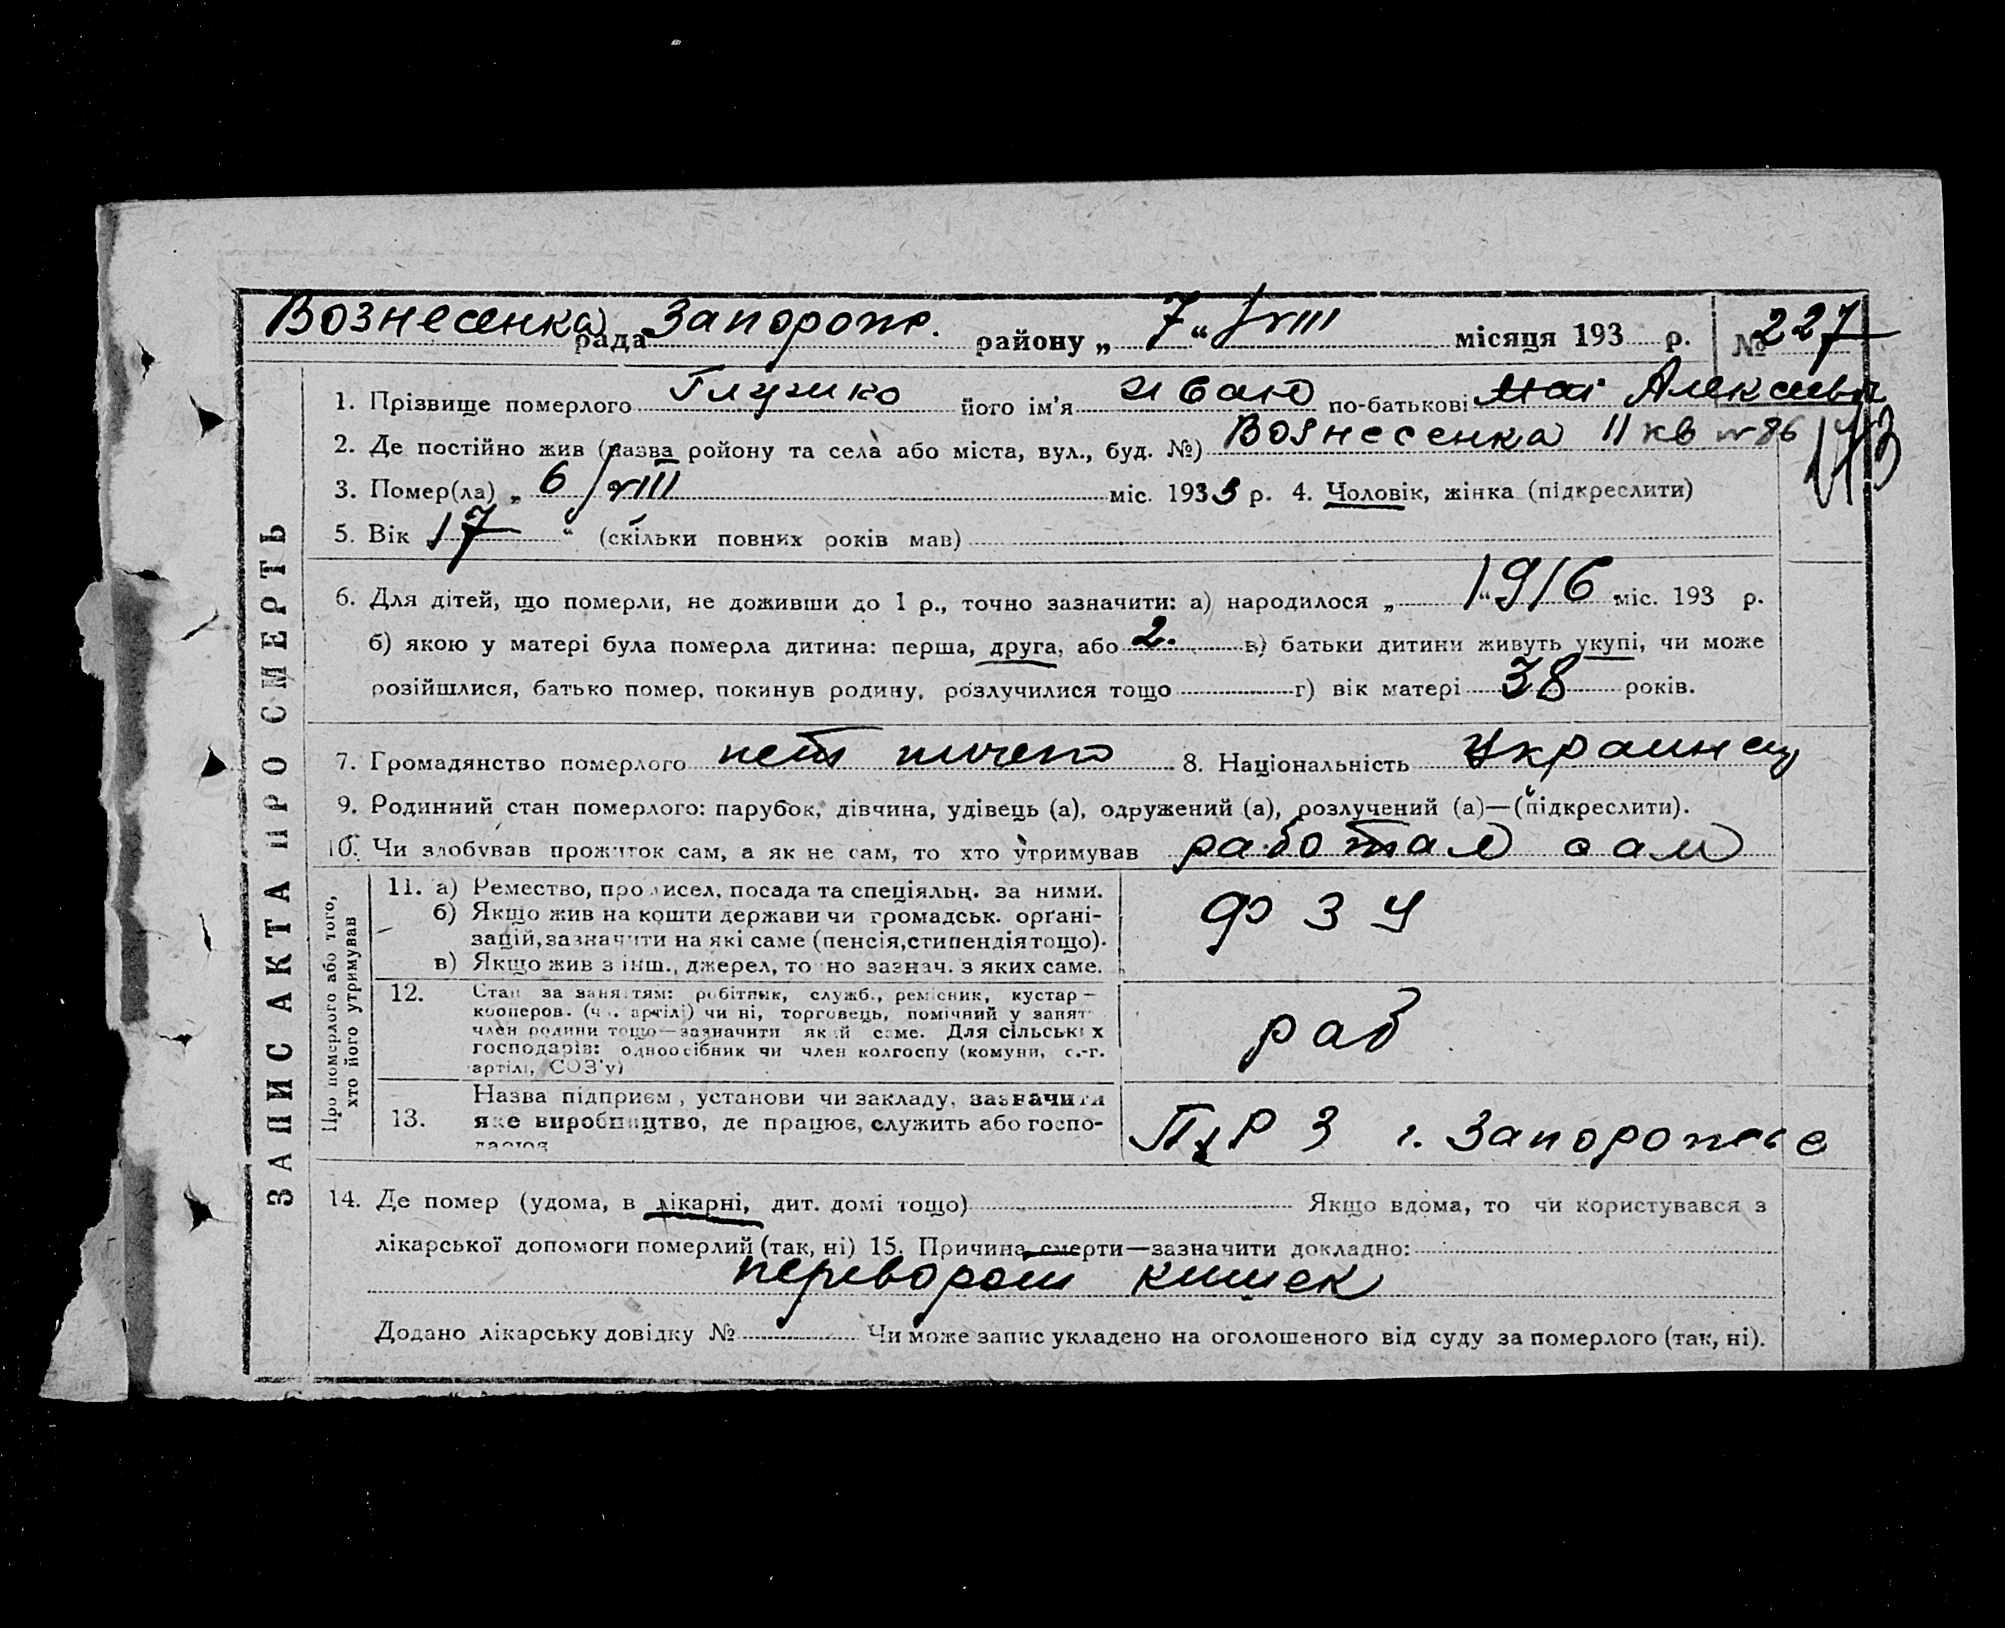 Вознесенка рада Запорож. району „ 7 “ VIII місяця 193 р. № 227
1. Прізвище померлого його ім'я Иван по-батькові Алексеев
2. Де постійно жив (назва ройону та села або міста, вул., буд. №) Вознесенка 11 кв № 86
3. Помер(ла) „ 6/VIII міс. 1933 р. 4. Чоловік, жінка (підкреслити)
5. Вік 17 “ (скільки повних років мав)
6. Для дітей, що померли, не доживши до 1 р., точно зазначити: а) народилося „ “ 1916 міс. 193 р.
б) якою у матері була померла дитина: перша, друга, або 2. в) батьки дитини живуть укупі, чи може
розійшлися, батько помер, покинув родину, розлучилися тощо г) вік матері 38 років.
7. Громадянство померлого 8. Національність Украинец
9. Родинний стан померлого: парубок, дівчина, удівець (а), одружений (а), розлучений (а)—(підкреслити).
10. Чи здобував прожиток сам, а як не сам, то хто утримував работал сам
ЗАПИС АКТА ПРО СМЕРТЬ
Про померлого або того,
хто його утримував
11. а) Ремество, промисел, посада та спеціяльн. за ними.
б) Якщо жив на кошти держави чи громадськ. орґані-
зацій, зазначити на які саме (пенсія, стипендія тощо).
в) Якщо жив з інш., джерел, точно зазнач. з яких саме.
ФЗУ
12. Стан за заняттям: робітник, служб., ремісник, кустар—
кооперов. (чл. артілі) чи ні, торговець, помічний у занят
член родини тощо—зазначити який саме. Для сільських
господарів: одноосібник чи член колгоспу (комуни, с.-г.
артілі, СОЗ'у)
раб
13. Назва підприєм, установи чи закладу, зазначити
яке виробництво, де працює, служить або госпо-
дарює
ПХРЗ г. Запорожье
14. Де помер (удома, в лікарні, дит. домі тощо) Якщо вдома, то чи користувався з
лікарської допомоги померлий (так, ні) 15. Причина смерти—зазначити докладно:
переворот кишек
Додано лікарську довідку № Чи може запис укладено на оголошеного від суду за померлого (так, ні).